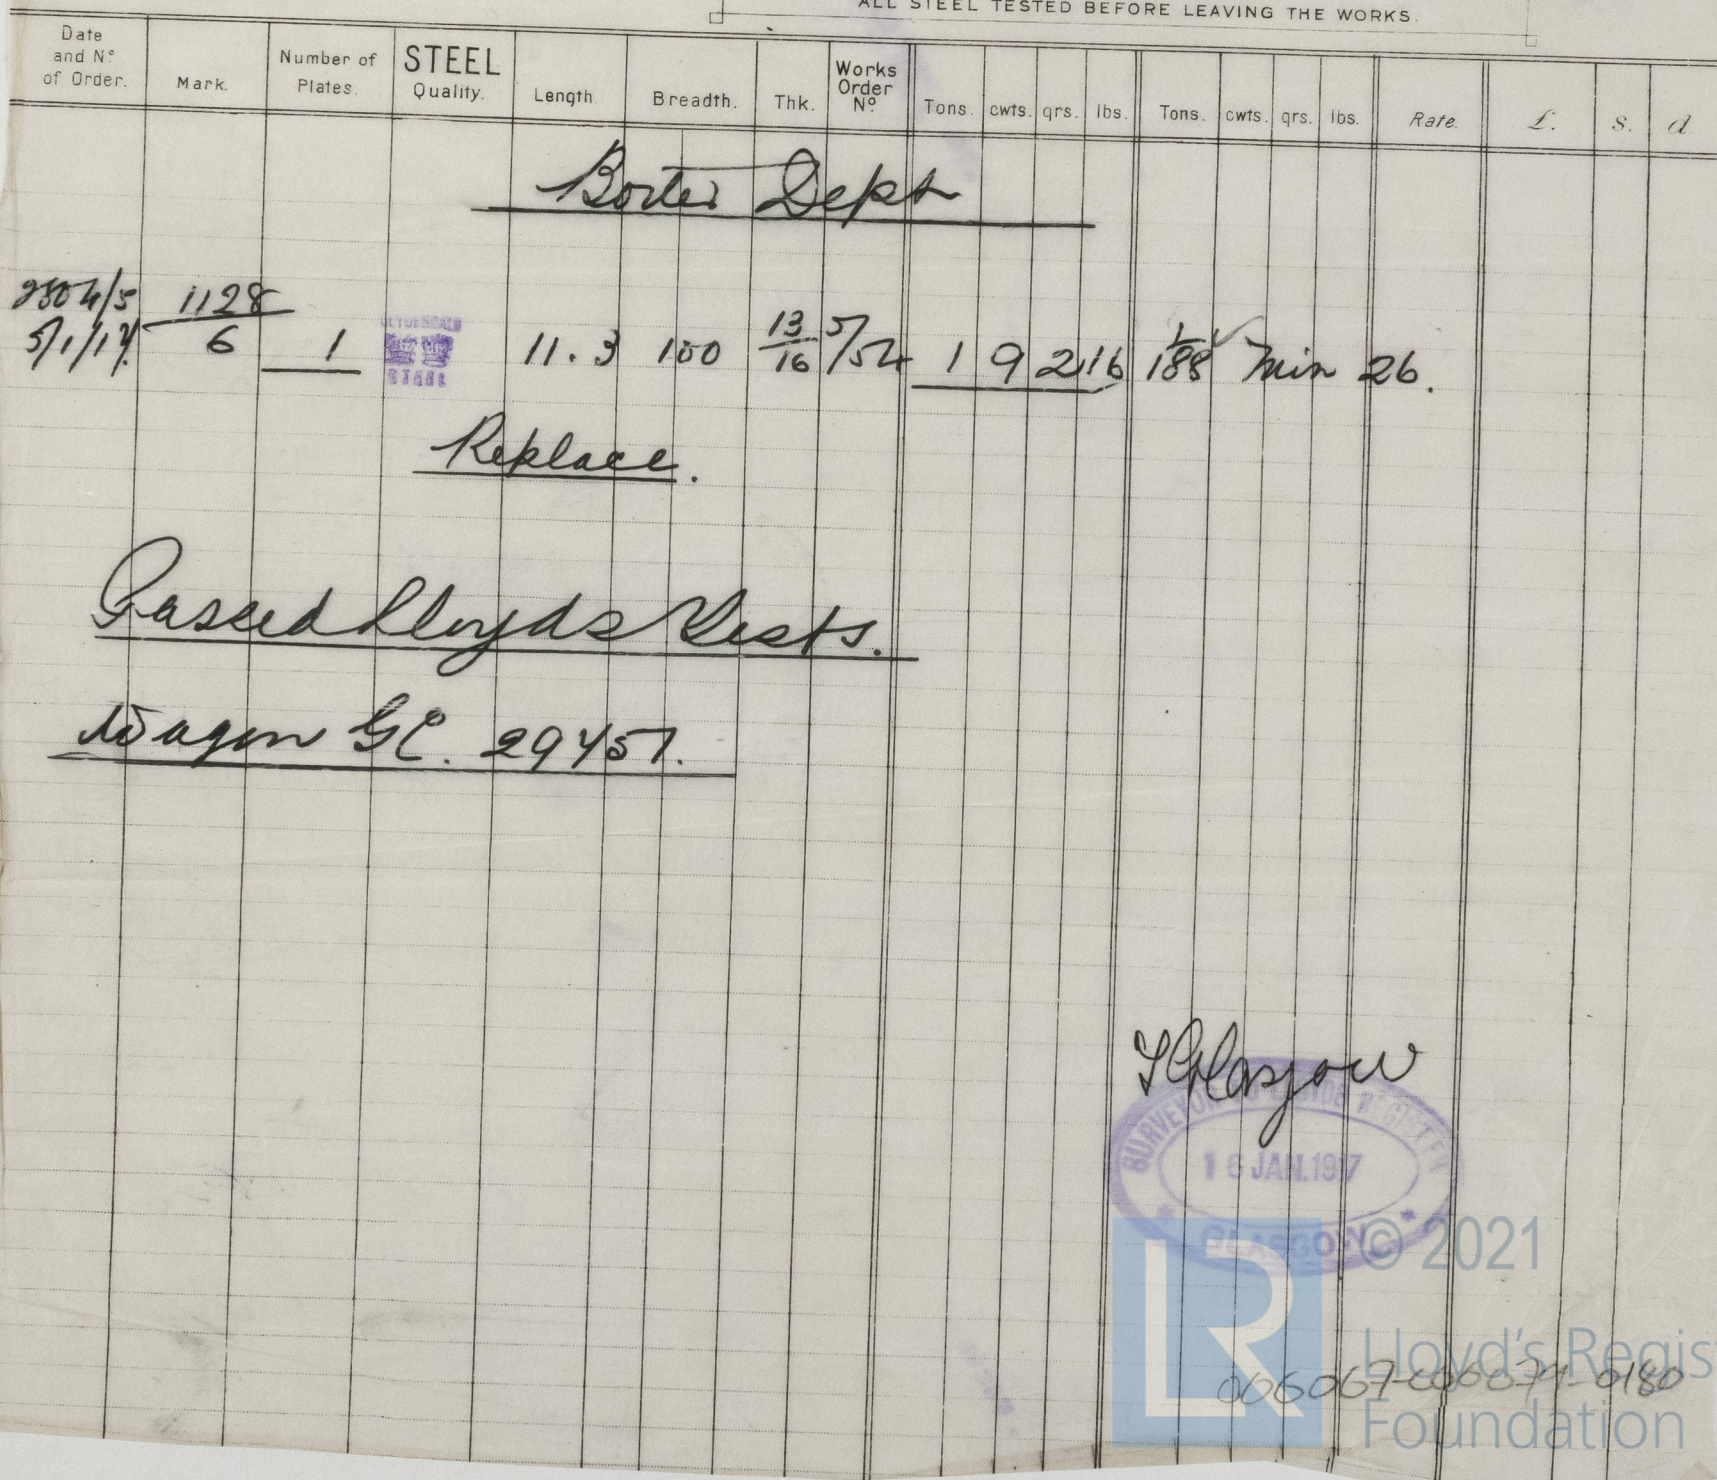 ALL STEEL TESTED BEFORE LEAVING THE WORKS.
Date and Nº of Order. Mark. Number of Plates. STEEL Quality. Length. Breadth. Thk. Works Order Nº Tons. cwts. qrs. lbs. Tons. cwts. qrs. lbs. Rate. £. s. d
Boiler Dept
2504/5 1128
5/1/17. 6 1 STEEL 11.3 100 13/16 5/54 1 9 2 16 1/188 Min 26.
Replace.
Passed Lloyds Tests.
Wagon GC. 29457.
Glasgow
SURVEYOR TO LLOYDS REGISTER
16 JAN.1917
GLASGOW
© 2021
LR
Lloyd's Regis
Foundation
006067-006079-0180